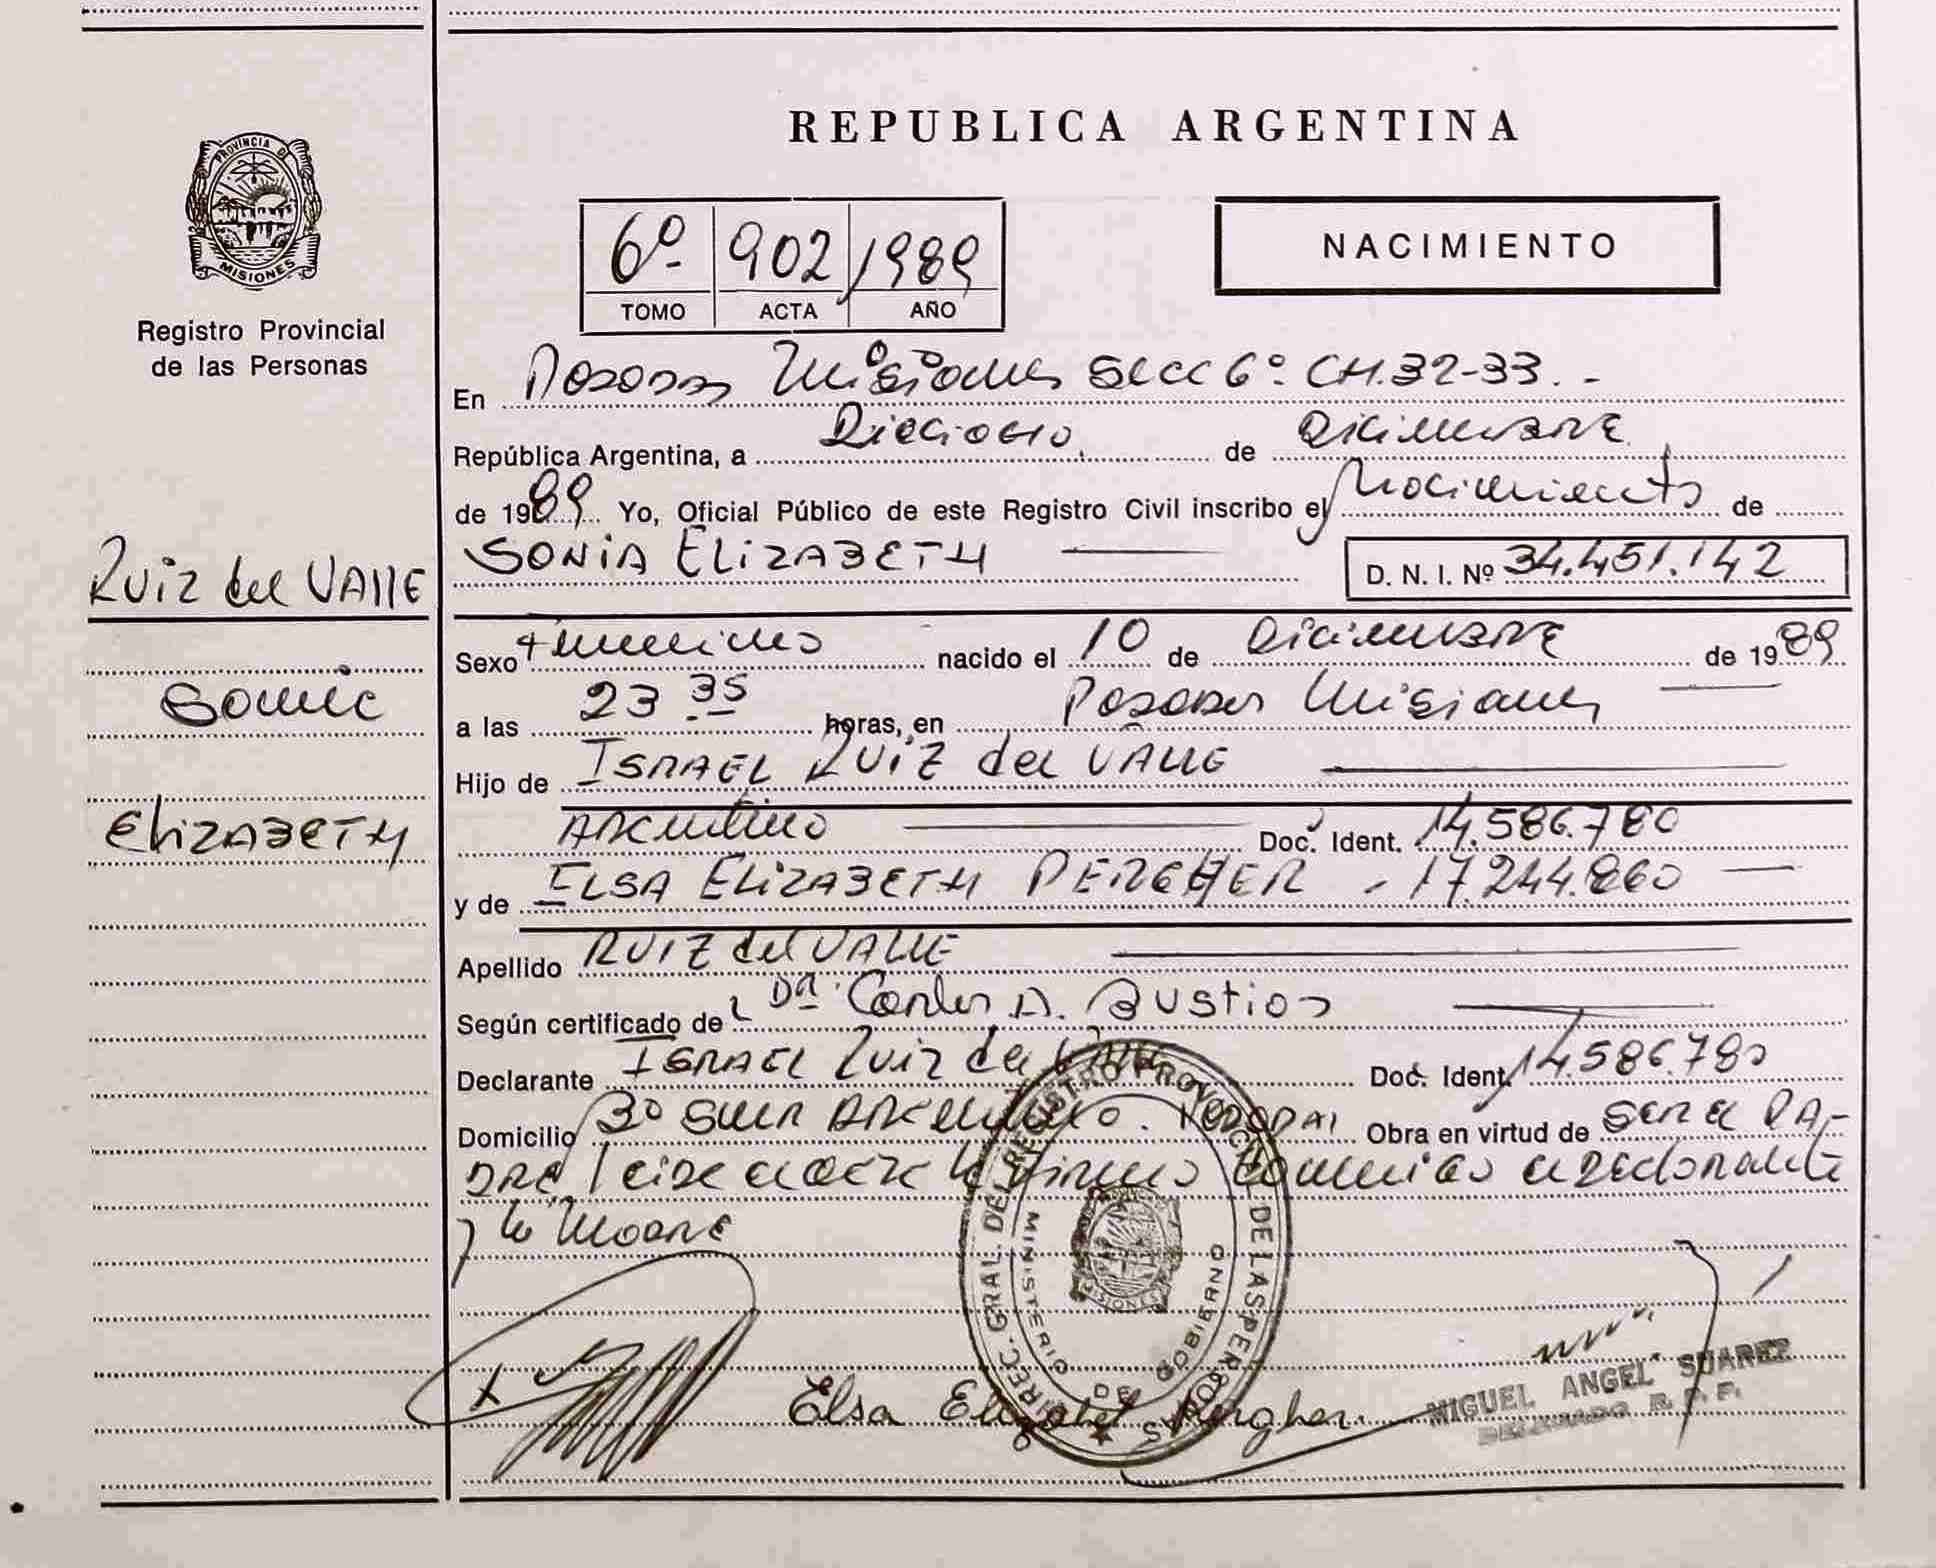 PROVINCIA DE
MISIONES
Registro Provincial
de las Personas
Ruiz del VAllE
Sonia
ElizABETH
REPUBLICA ARGENTINA
6º 902 1989
TOMO ACTA AÑO
NACIMIENTO
En Posadas Misiones Secc 6º. CH. 32-33.-
República Argentina, a Dieciocho de Diciembre
de 1989 Yo, Oficial Público de este Registro Civil inscribo el Nacimiento de
SONIA ElizABETH D. N. I. Nº 34.451.142
Sexo Femenino nacido el 10 de Diciembre de 1989
a las 23 35 horas, en Posadas Misiones
Hijo de ISRAEL RUIZ del VALLE
ARGENTINO Doc. Ident. 14.586.780
y de ELSA ElizABETH PERGHER - 17.244.860
Apellido RUIZ del VALLE
Según certificado de Carlos A. Bustios
Declarante ISRAEL Ruiz del Valle Doc. Ident. 14.586.780
Domicilio Argentino. Posadas Obra en virtud de SER el PA-
DRE Leida el acta la firman conmigo el declarante
y la Madre
DIREC. GRAL. DEL REGISTRO PROVINCIAL DE LAS PERSONAS
MINISTERIO DE GOBIERNO
MISIONES
Elsa Elizabet Pergher.
MIGUEL ANGEL SUAREZ
DELEGADO R. P. P.